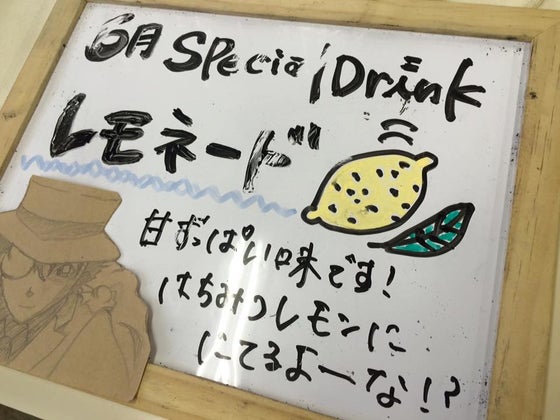 6月 Special Drink
レモネード
甘ずっぱい味です!
はちみつレモンに
にてるよーな!?